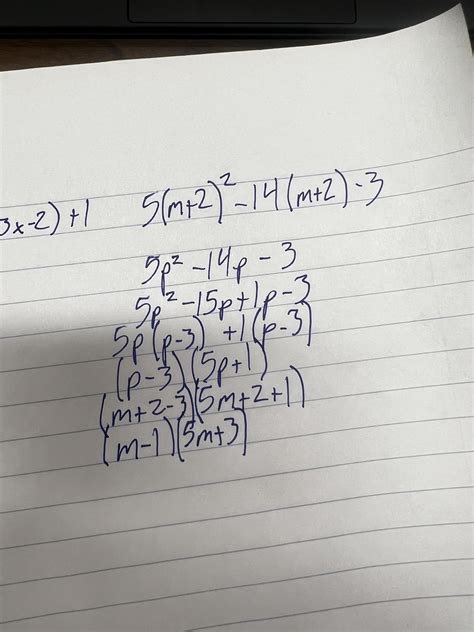 3x-2)+1
5(m+2)²-14(m+2)-3
5p²-14p-3
5p²-15p+1p-3
5p(p-3)+1(p-3)
(p-3)(5p+1)
(m+2-3)(5m+2+1)
(m-1)(5m+3)